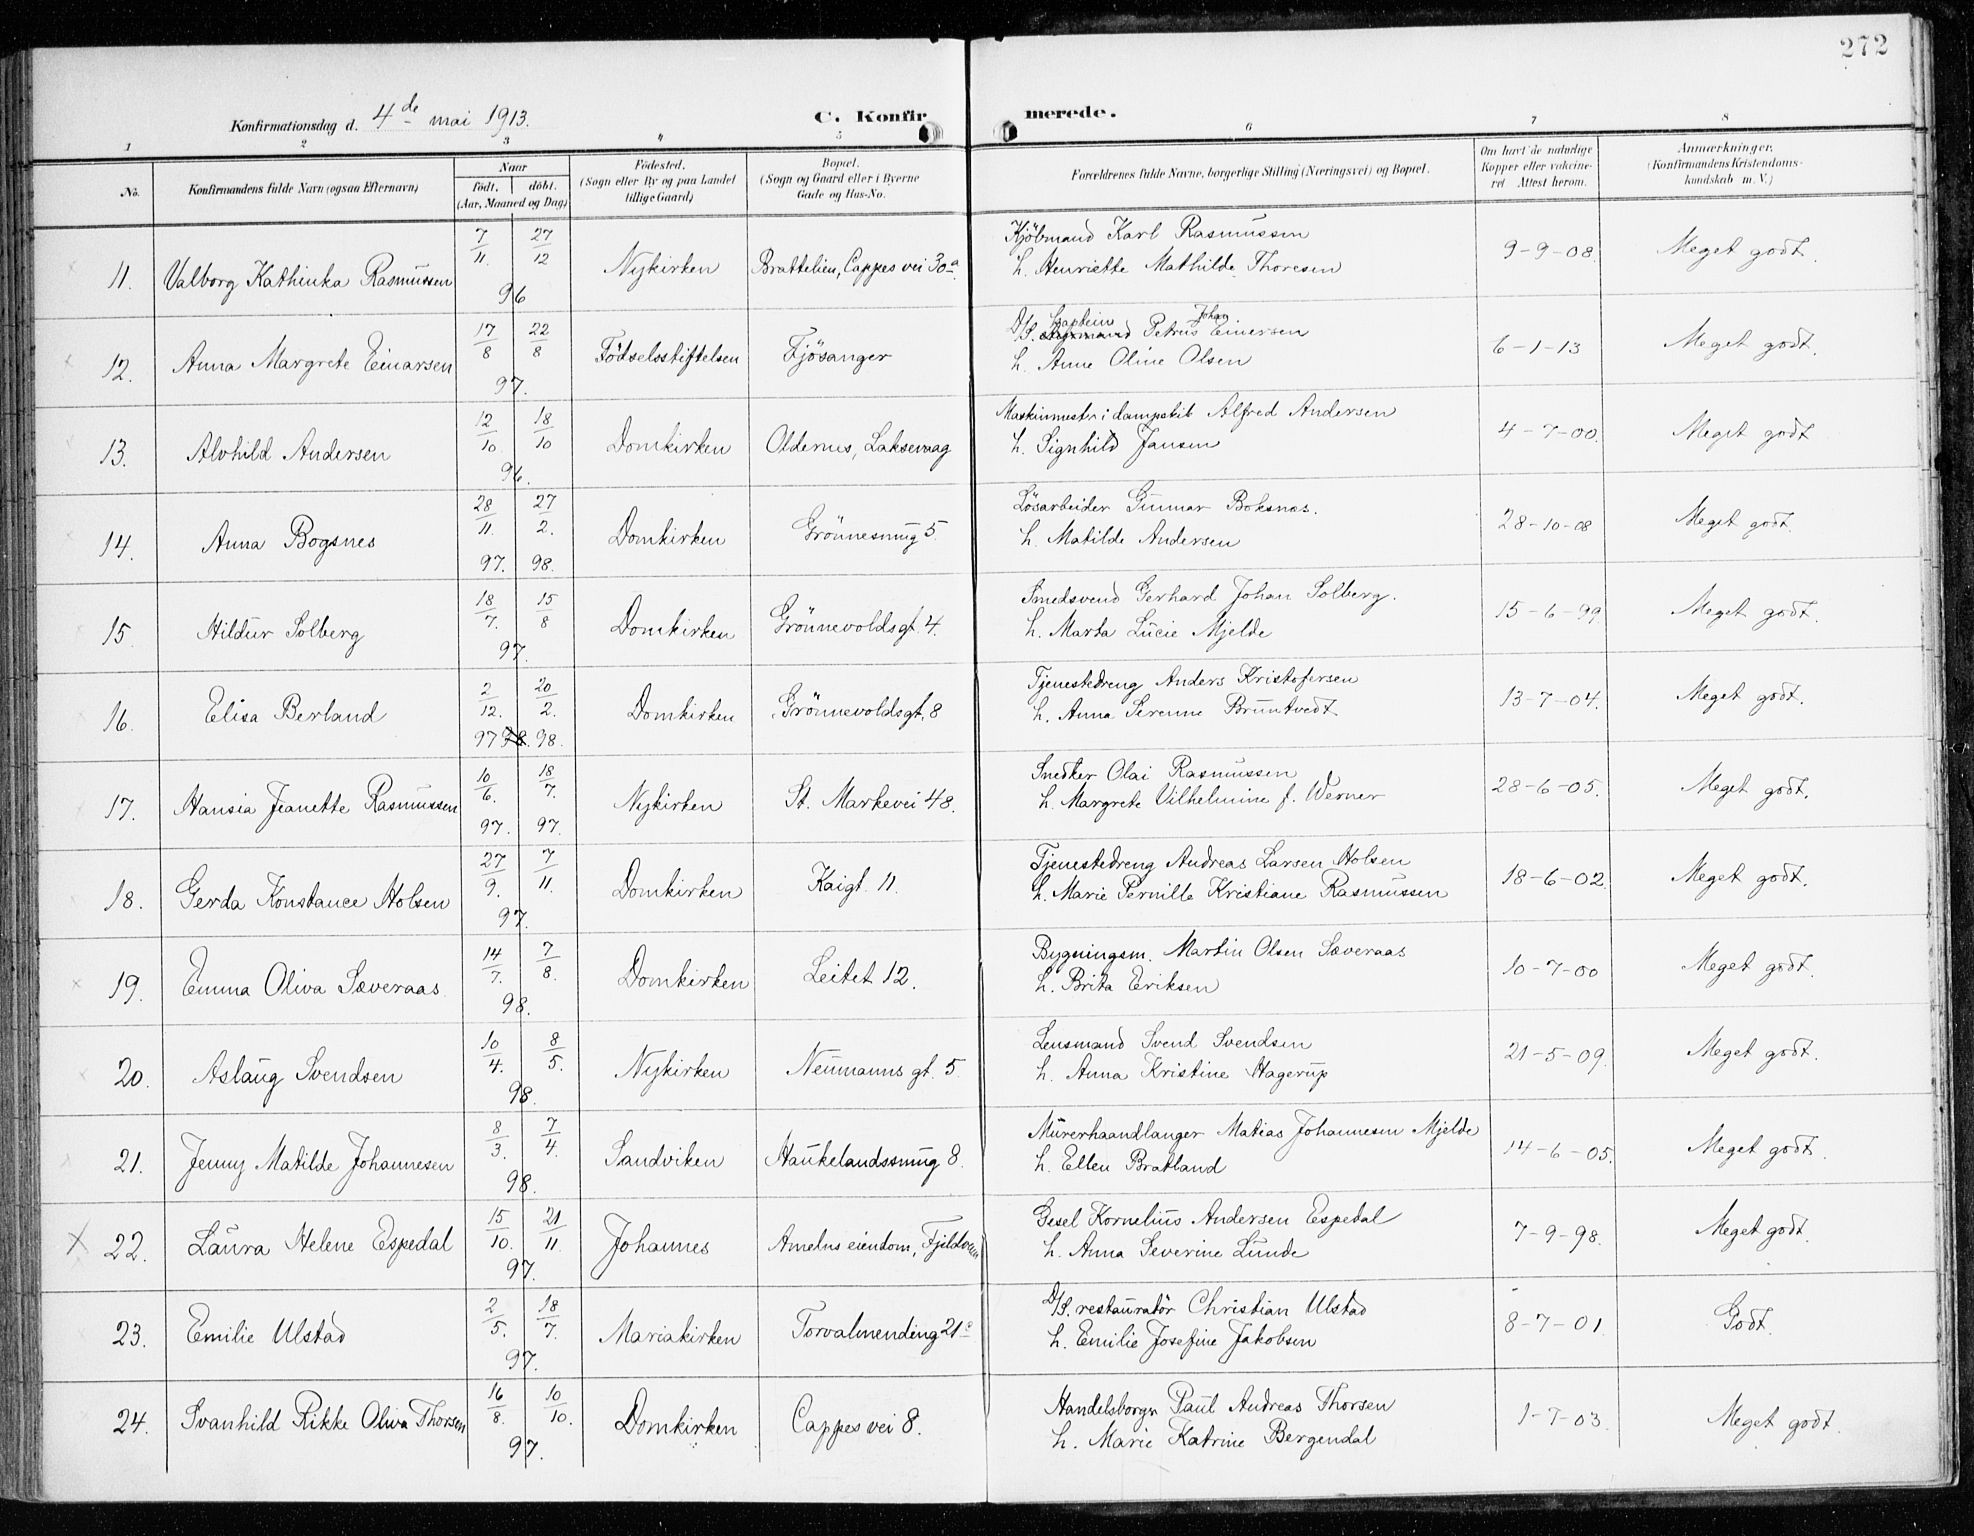 272
Konfirmationsdag d. 4de mai 1913.
C. Konfirmerede.
1 2 3 4 5 6 7 8
No.
Konfirmandens fulde Navn (ogsaa Efternavn)
Naar
födt. döbt.
(Aar, Maaned og Dag)
Födested.
(Sogn eller By og paa Landet
tillige Gaard)
Bopæl.
(Sogn og Gaard eller i Byerne
Gade og Hus-No.
Forældrenes fulde Navne, borgerlige Stilling (Næringsvei) og Bopæl.
Om havt de naturlige
Kopper eller vakcine-
ret Attest herom.
Anmærkninger.
(Konfirmandens Kristendoms-
kundskab m. V.)
11. Valborg Kathinka Rasmussen 7/11. 27/12 96 Nykirken Brattelien, Cappes vei 30a Kjöbmand Karl Rasmussen
h. Henriette Mathilde Thoresen 9-9-08. Meget godt.
12. Anna Margrete Einarsen 17/8 22/8 97. Födselsstiftelsen Fjösanger D/S. kaptein Petrus Johan Einersen
h. Anne Oline Olsen 6-1-13 Meget godt.
13. Alvhild Andersen 12/10. 18/10 96. Domkirken Oldernes, Laksevaag Maskinmester i dampskib Alfred Andersen
h. Signhild Jansen 4-7-00. Meget godt
14. Anna Bogsnes 28/11. 97. 27/2. 98. Domkirken Grönnesmug 5. Lösarbeider Gunnar Boksnes.
h. Matilde Andersen 28-10-08 Meget godt.
15. Hildur Solberg 18/7. 15/8 97. Domkirken Grönnevoldsgt. 4. Smedsvend Gerhard Johan Solberg.
h. Marta Lucie Mjelde 15-6-99 Meget godt.
16. Elisa Berland 2/12. 97 20/2. 98. Domkirken Grönnevoldsgt. 8 Tjenestedreng Anders Kristofersen
h. Anna Serenne Bruntvedt 13-7-04. Meget godt.
17. Hansia Jeanette Rasmussen 10/6. 97. 18/7. 97. Nykirken St. Markevei 48. Snedker Olai Rasmussen
h. Margrete Vilhelmine f. Werner 28-6-05. Meget godt.
18. Gerda Konstance Holsen 27/9. 7/11. 97. Domkirken Kaigt. 11. Tjenestedreng Andreas Larsen Holsen
h. Marie Pernille Kristiane Rasmussen 18-6-02. Meget godt.
19. Emma Oliva Sæveraas 14/7. 7/8. 98. Domkirken Leitet 12. Bygningsm. Martin Olsen Sæveraas
h. Brita Eriksen 10-7-00 Meget godt.
20. Aslaug Svendsen 10/4. 8/5. 98. Nykirken Neumanns gt. 5 Lensmand Svend Svendsen
h. Anna Kristine Hagerup 21-5-09. Meget godt.
21. Jenny Matilde Johannesen 8/3. 7/4. 98. Sandviken Haukelandssmug 8. Murerhaandlanger Matias Johannesen Mjelde
h. Ellen Bratland 14-6-05. Meget godt.
X 22. Laura Helene Espedal 15/10. 21/11. 97. Johannes Amelns eiendom, Fjeldveien Gesel Kornelius Andersen Espedal
h. Anna Severine Lunde 7-9-98. Meget godt.
23. Emilie Ulstad 2/5. 18/7. 97. Mariakirken Torvalmending 21c D/S. restauratör Christian Ulstad
h. Emilie Josefine Jakobsen 8-7-01. Godt.
24. Svanhild Rikke Oliva Thorsen 16/8. 10/10. 97. Domkirken Cappes vei 8. Handelsborger Paul Andreas Thorsen
h. Marie Katrine Bergendal 1-7-03. Meget godt.